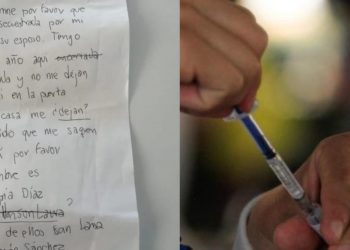 nne por favor que
secuestrada por mi
su esposo. Tengo
año aquí encerrada
da y no me dejan
i en la puerta
casa me ¿dejan?
ido que me saquen
í por favor
mbre es
ría Díaz
de ellos son Lana
Sánchez